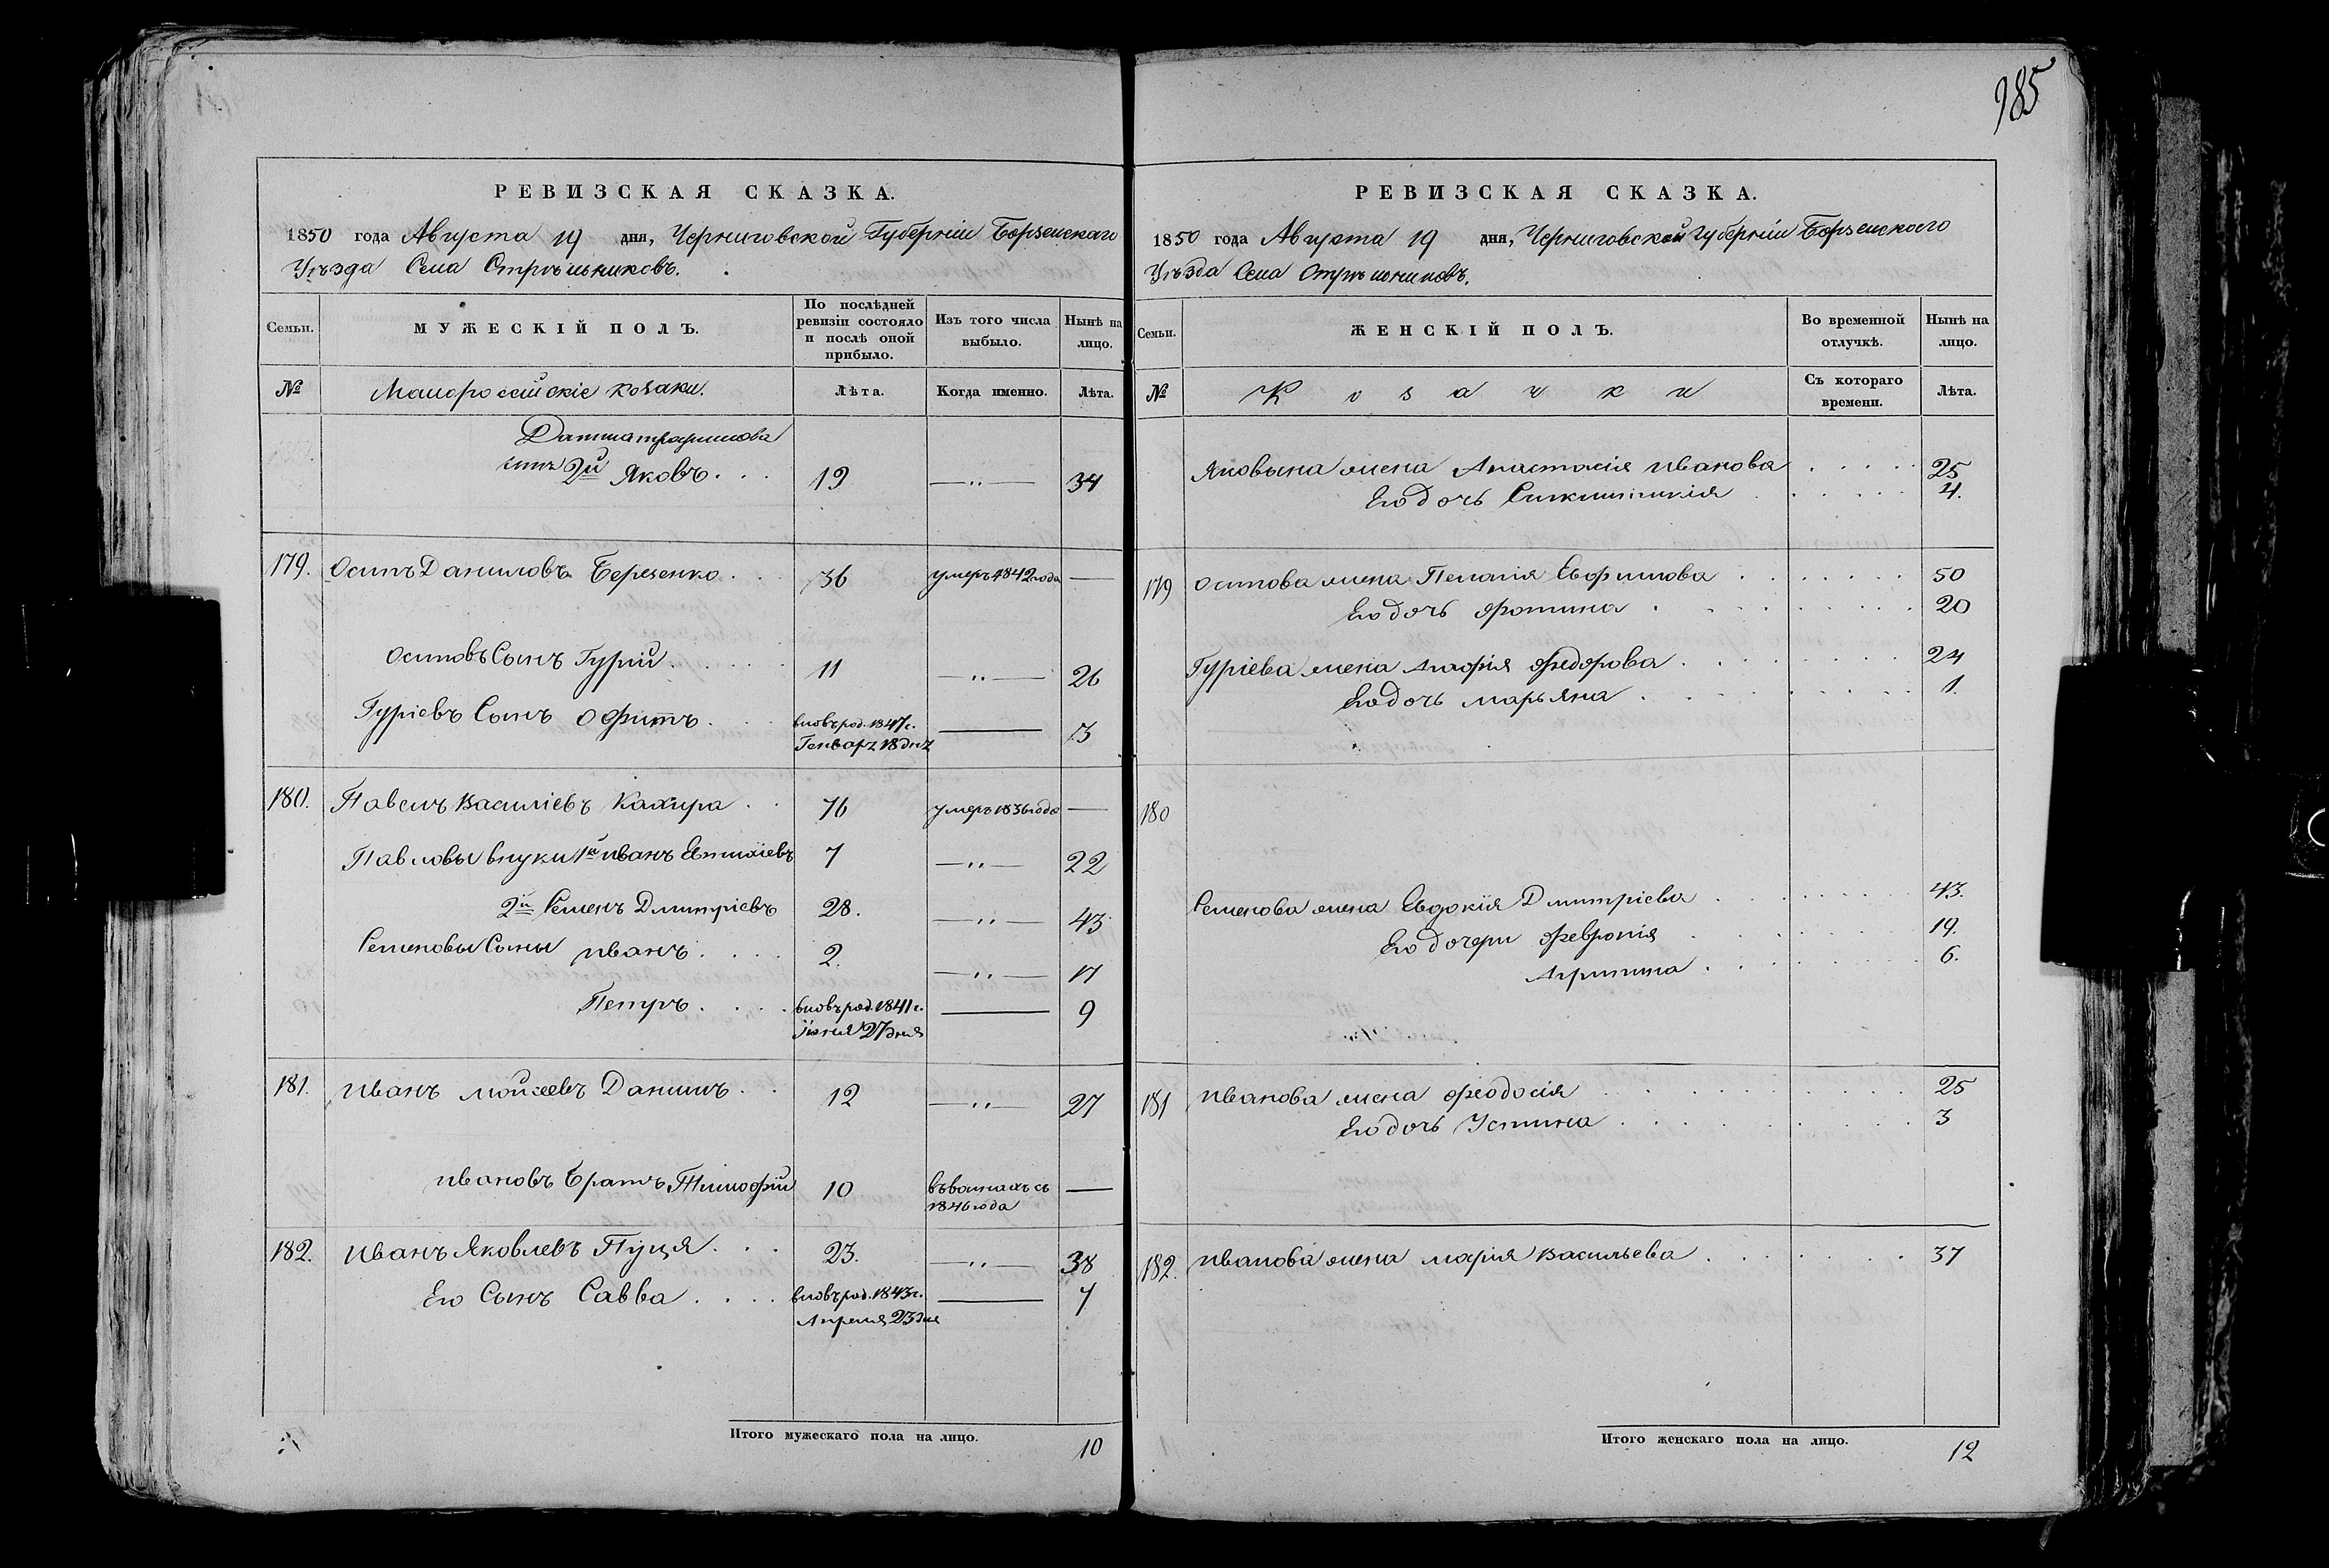 985
РЕВИЗСКАЯ СКАЗКА.
1850 года Августа 19 дня, Черниговской Губерніи Борзенскаго
Уѣзда Села Стрѣльниковъ.
Семьи.
МУЖЕСКІЙ ПОЛЪ.
По послѣдней ревизіи состояло и послѣ оной прибыло.
Изъ того числа выбыло.
Нынѣ на лицо.
№
Малороссійскіе козаки.
Лѣта.
Когда именно.
Лѣта.
сынъ 2й Яковъ. . . 19 —„— 34
179. Осипъ Даниловъ Березенко . . 36 умеръ 1842 года —
Осиповъ Сынъ Гурій . . . . 11 —„— 26
Гуріевъ Сынъ . . . вновь род. 1847 г. Генваря 18 дня — 3
180. Павелъ Василіевъ Кахира . . 76 умеръ 1836 года —
Павловы внуки 1й Иванъ 7 —„— 22
2й Семенъ Дмитріевъ 28. —„— 43
Семеновы Сыны Иванъ . . . . 2. —„— 17
Петръ . . . . вновь род. 1841 г. Іюня 27 дня — 9
181. Иванъ Мойсеевъ Данинъ . . 12 —„— 27
Ивановъ Братъ Тимофій 10 1846 года —
182. Иванъ Яковлевъ Пуця . . . 23. —„— 38
Его Сынъ Савва . . . . вновь род. 1843 г. Апреля 23 дня — 7
Итого мужескаго пола на лицо. 10
РЕВИЗСКАЯ СКАЗКА.
1850 года Августа 19 дня, Черниговской Губерніи Борзенскаго
Уѣзда Села Стрѣльниковъ.
Семьи.
ЖЕНСКІЙ ПОЛЪ.
Во временной отлучкѣ.
Нынѣ на лицо.
№
Козачки
Съ котораго времени.
Лѣта.
жена Анастасія Иванова . . . . 25
Его дочь . . . . 4.
179 Осипова жена Пелагія Евфимова . . . . 50
Его дочь Фотина . . . . 20
Гуріева жена Агафія Федорова . . . . 24
Его дочь Марьяна . . . . 1.
180
Семенова жена Евдокія Дмитріева . . . . 43.
Его дочери Февронія . . . . 19.
Агрипина . . . . 6.
181 Иванова жена Феодосія . . . . 25
Его дочь Устина . . . . 3
182. Иванова жена Марія Васильева . . . . 37
Итого женскаго пола на лицо. 12